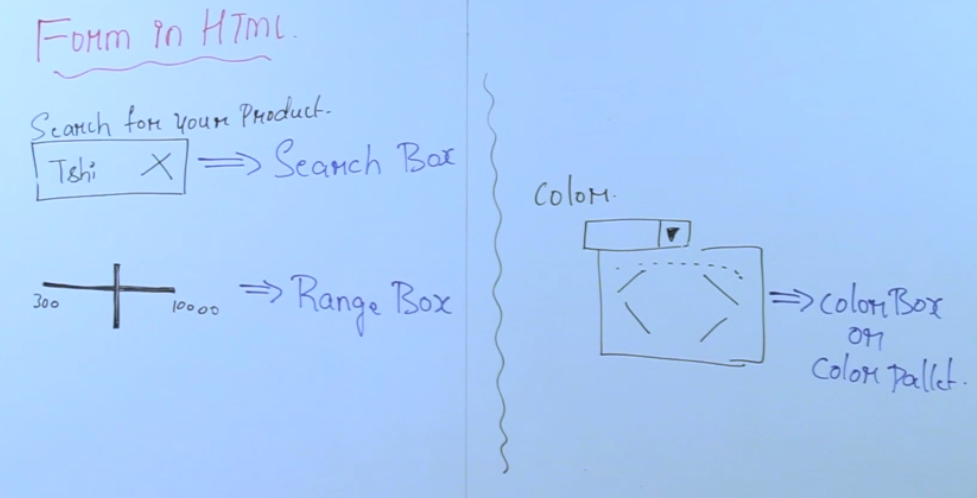 Form in HTML.
Search for your Product.
Tshi X => Search Box
300 10000 => Range Box
Color.
=> Color Box
or
Color Pallet.